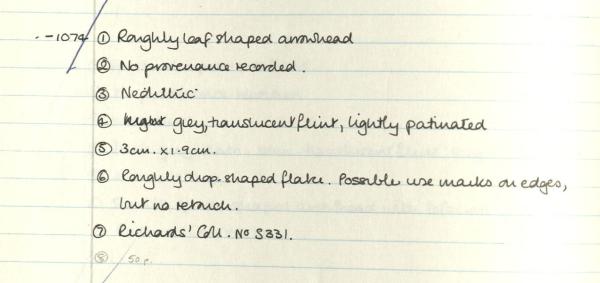 -1074 ① Roughly leaf shaped arrowhead
② No provenance recorded.
③ Neolithic
④ grey, translucent flint, lightly patinated
⑤ 3cm. x 1.9cm.
⑥ Roughly drop-shaped flake. Possible use marks on edges,
but no retouch.
⑦ Richards' Coll. No S331.
⑧ 50p.